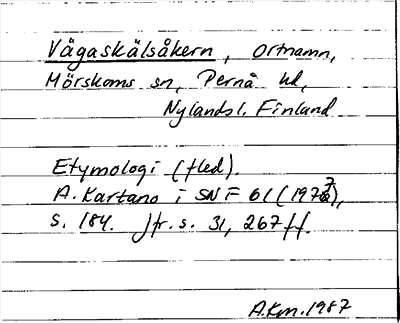 Vägaskälsåkern, Ortnamn,
Mörskoms sn, Pernå hd,
Nylands l. Finland
Etymologi (fled).
A. Kartano i SNF 61 (1977),
s. 184. Jfr. s. 31, 267 ff.
A.Km. 1987